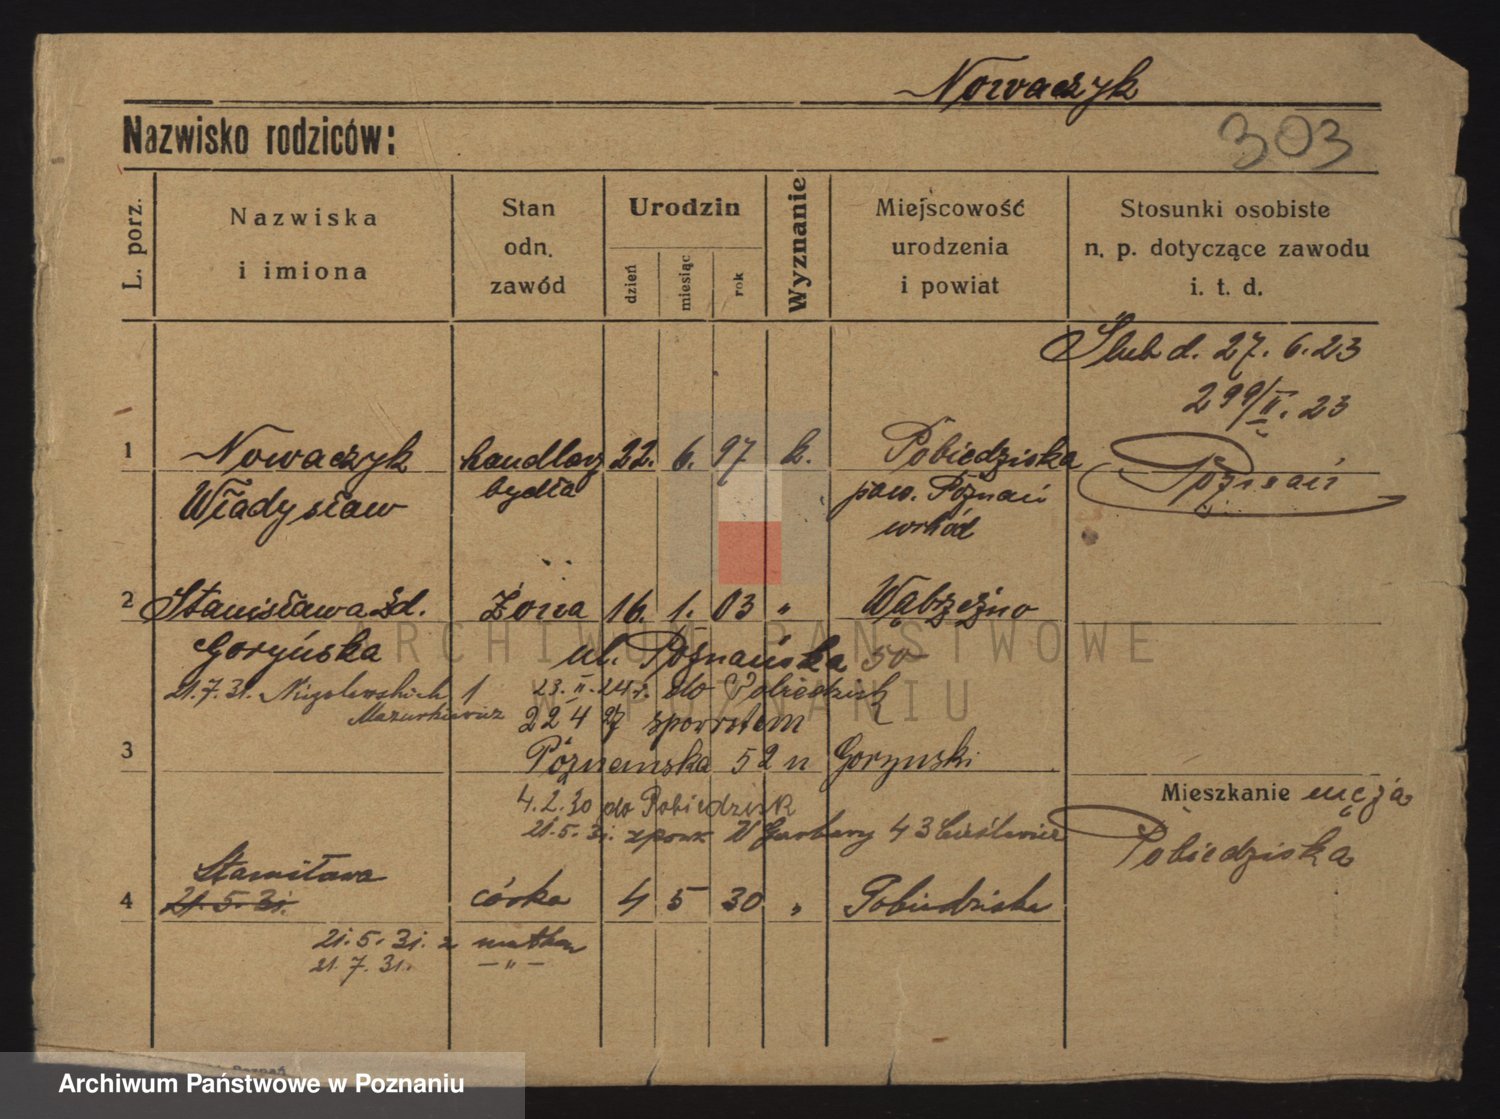 Nowaczyk
Nazwisko rodziców:
303
L. porz.
Nazwiska
i imiona
Stan
odn.
zawód
Urodzin
dzień
miesiąc
rok
Wyznanie
Miejscowość
urodzenia
i powiat
Stosunki osobiste
n. p. dotyczące zawodu
i. t. d.
Ślub d. 27. 6. 23
299/II. 23
1 Nowaczyk handlarz 22. 6. 97 k. Pobiedziska Poznań
Władysław bydła pow. Poznań
wschód
2 Stanisława żd. Żona 16. 1. 03 " Wąbrzeźno
Goryńska ul. Poznańska 50
21.7.31. 1 23. II. 24 r. do Pobiedzisk
Mazurkiewicz 22 4 27 zpowrotem
3 Poznanska 52 u Gorynski
4.2.30 do Pobiedzisk
Mieszkanie męża
21.5.31. zpow W Garbary 43 Cieślewicz
Pobiedziska
Stanisława
4 21.5.31. córka 4 5 30 " Pobiedziska
21.5.31. z matką
21.7.31. - " -
ARCHIWUM PAŃSTWOWE
W POZNANIU
Archiwum Państwowe w Poznaniu